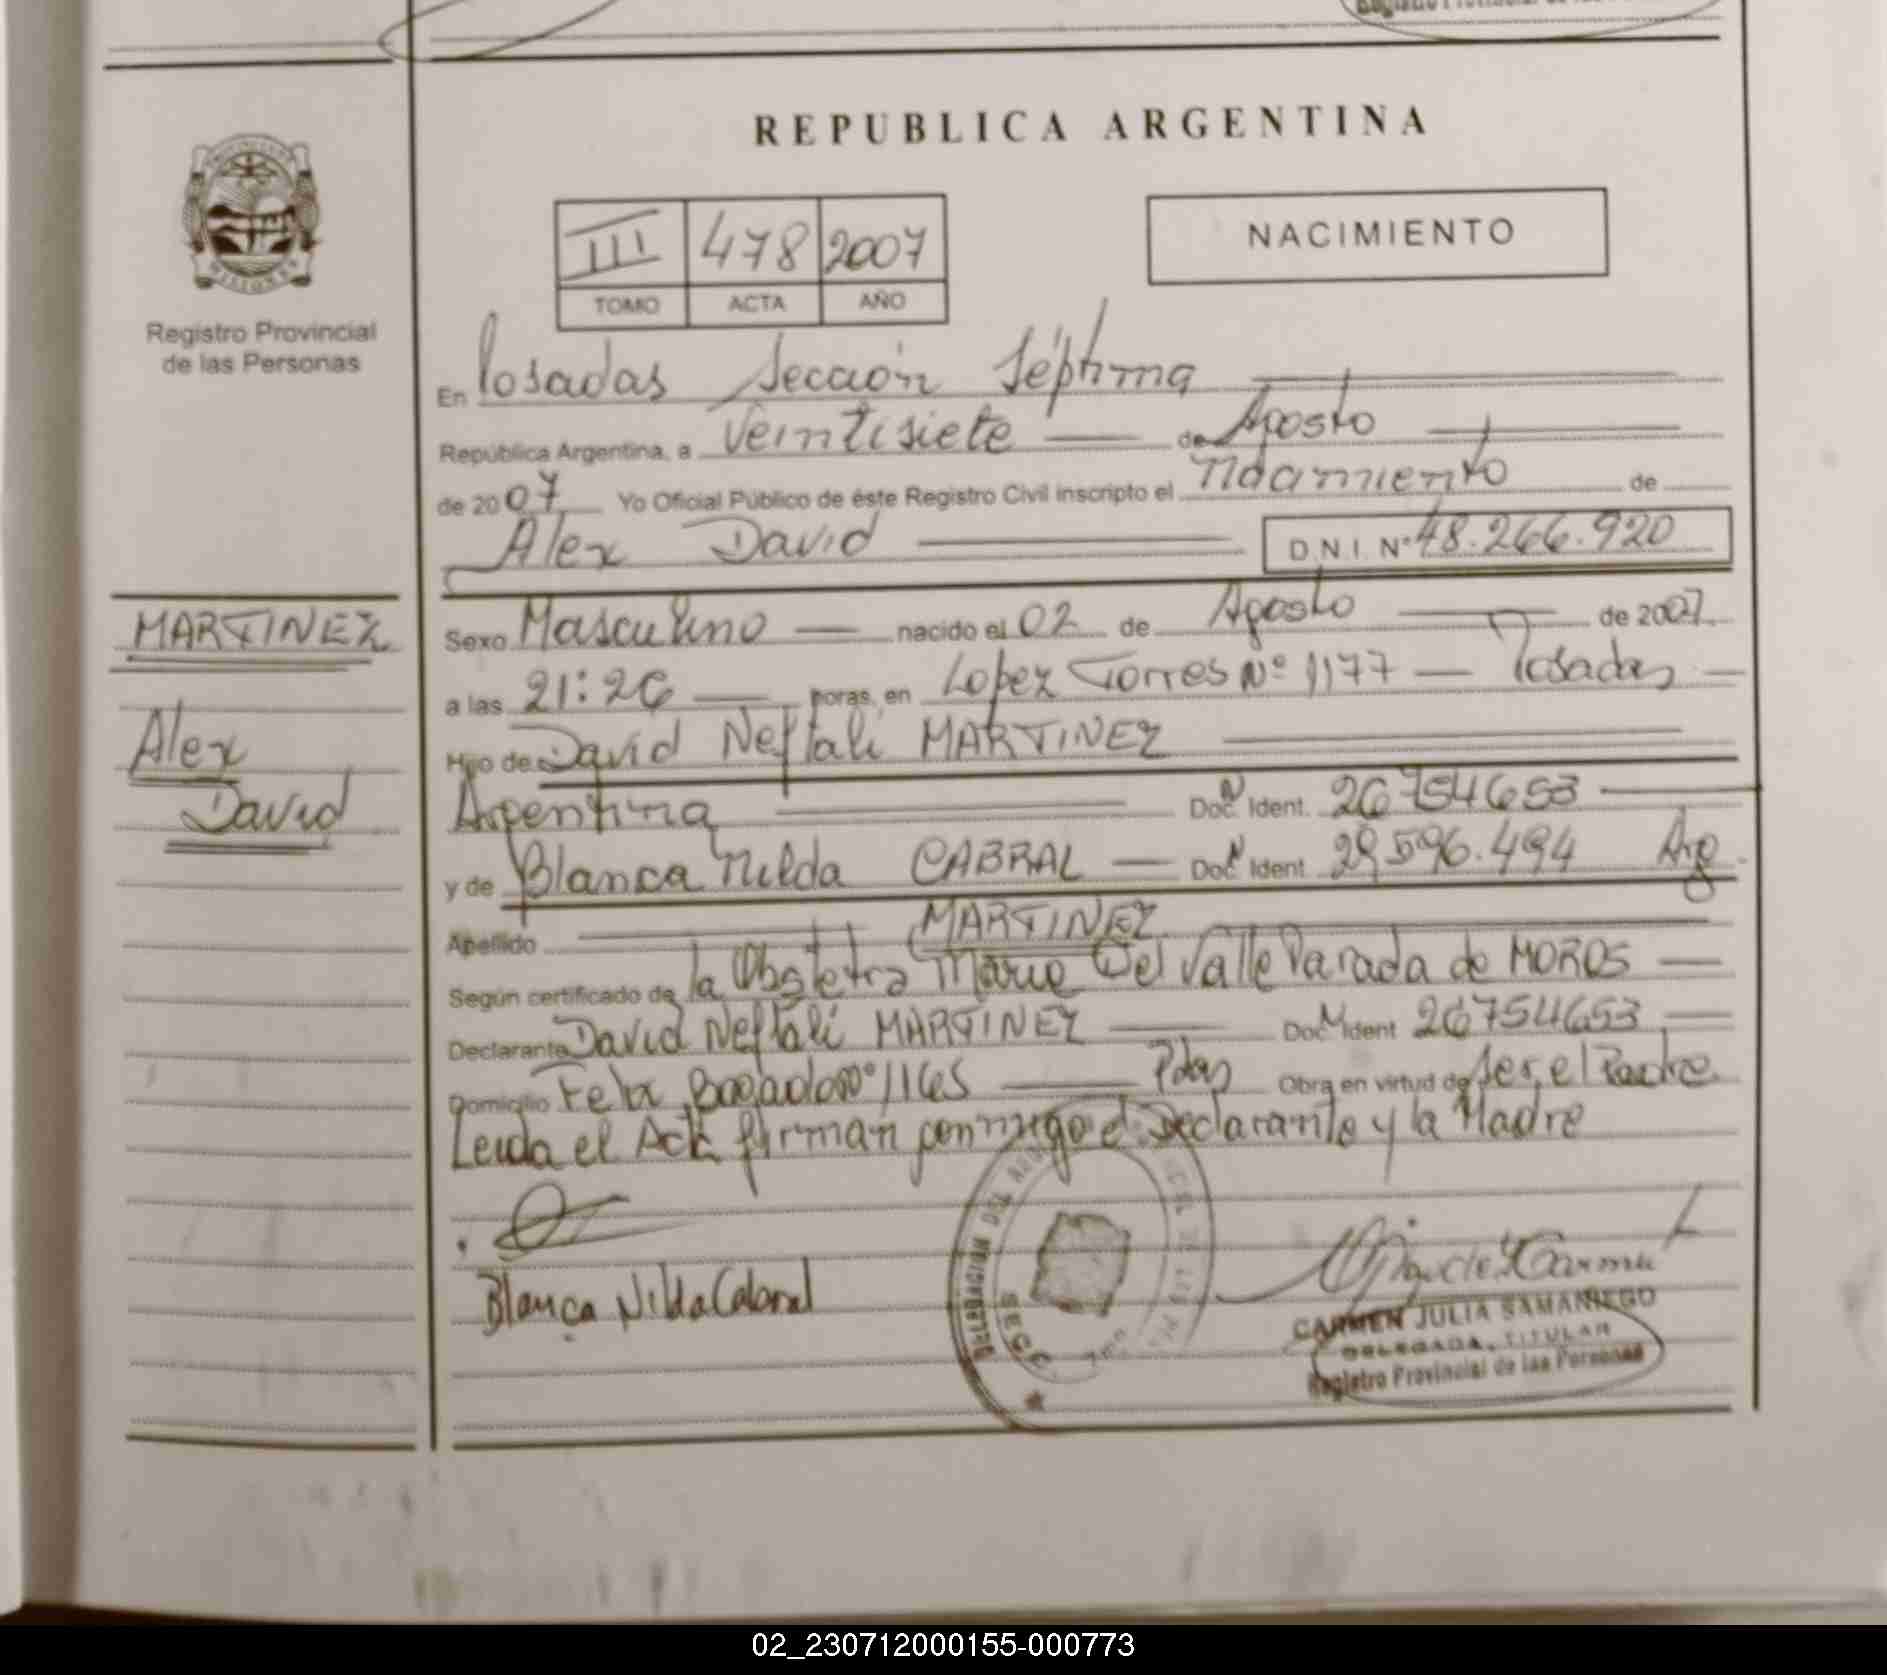 REPUBLICA ARGENTINA
Registro Provincial
de las Personas
III 478 2007
TOMO ACTA AÑO
NACIMIENTO
En Posadas Sección Séptima
República Argentina, a Veintisiete de Agosto
de 2007 Yo Oficial Público de éste Registro Civil inscripto el Nacimiento de
Alex David D.N.I. Nº 48.266.920
MARTINEZ
Alex
David
Sexo Masculino nacido el 02 de Agosto de 2007
a las 21:26 horas, en Lopez Torres Nº 1177 - Posadas
Hijo de David Neftali MARTINEZ
Argentina Doc. Ident. 26754653
y de Blanca Nilda CABRAL Doc. Ident 29.596.494 Arg
Apellido MARTINEZ
Según certificado de la Obstetra Maria Del Valle Parada de MOROS
Declarante David Neftali MARTINEZ Doc Ident 26754653
Domicilio Felix Bogado Nº 1165 Pdas Obra en virtud de ser el Padre
Leida el Acta firman conmigo el Declarante y la Madre
Blanca Nilda Cabral
DELEGACION DEL
SECC
CARMEN JULIA SAMANIEGO
DELEGADA TITULAR
Registro Provincial de las Personas
02_230712000155-000773